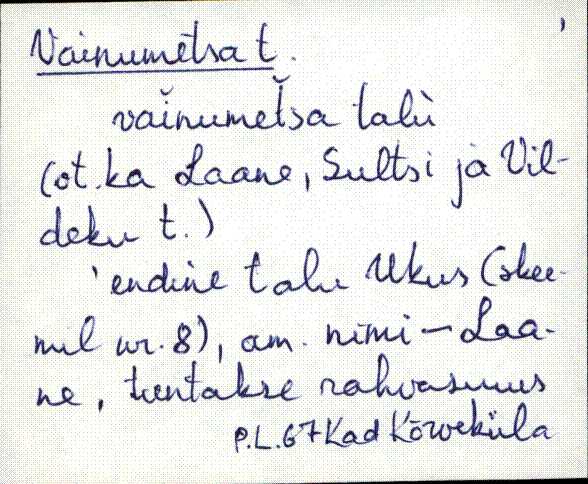 Vainumetsa t.
vainumetsa talù
(ot. ka Laane, Sultsi ja Vil-
deku t.)
'endine talu Ukus (skee-
mil nr. 8), am. nimi – Laa-
ne, tuntakse rahvasuus
P.L. 67 Kad Kõrveküla